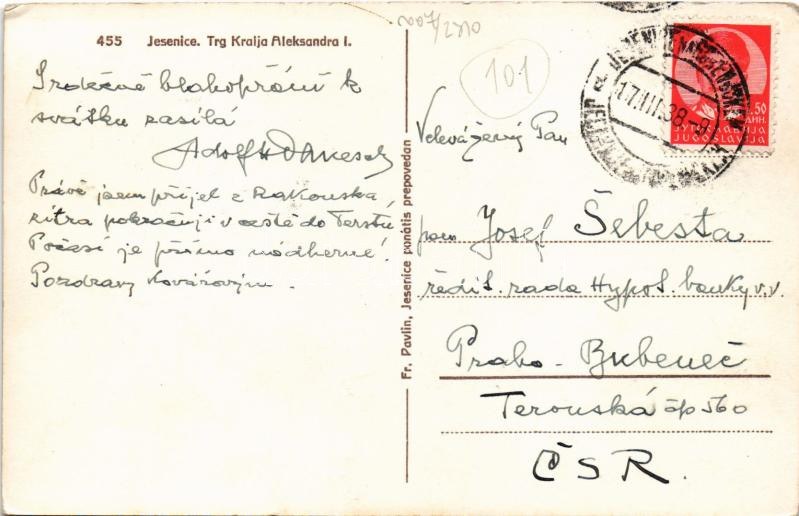 455 Jesenice. Trg Kralja Aleksandra I.
Srdečné blahopřání k
svátku zasílá
Adolf
Právě jsem přijel z Rakouska
zítra pokračuji v cestě do Terstu.
Počasí je přímo nádherné!
Pozdravy Kovářovým.
Fr. Pavlin, Jesenice ponatis prepovedan
101
17.III.38-9
JESENICE NA GORENJSKEM
.50
ДИН.
ЈУГОСЛАВИЈА
JUGOSLAVIJA
Velevážený Pan
pan Josef Šebesta
ředit. rada Hypot. banky v.v.
Praha - Bubeneč
Terronská čp 560
ČSR.